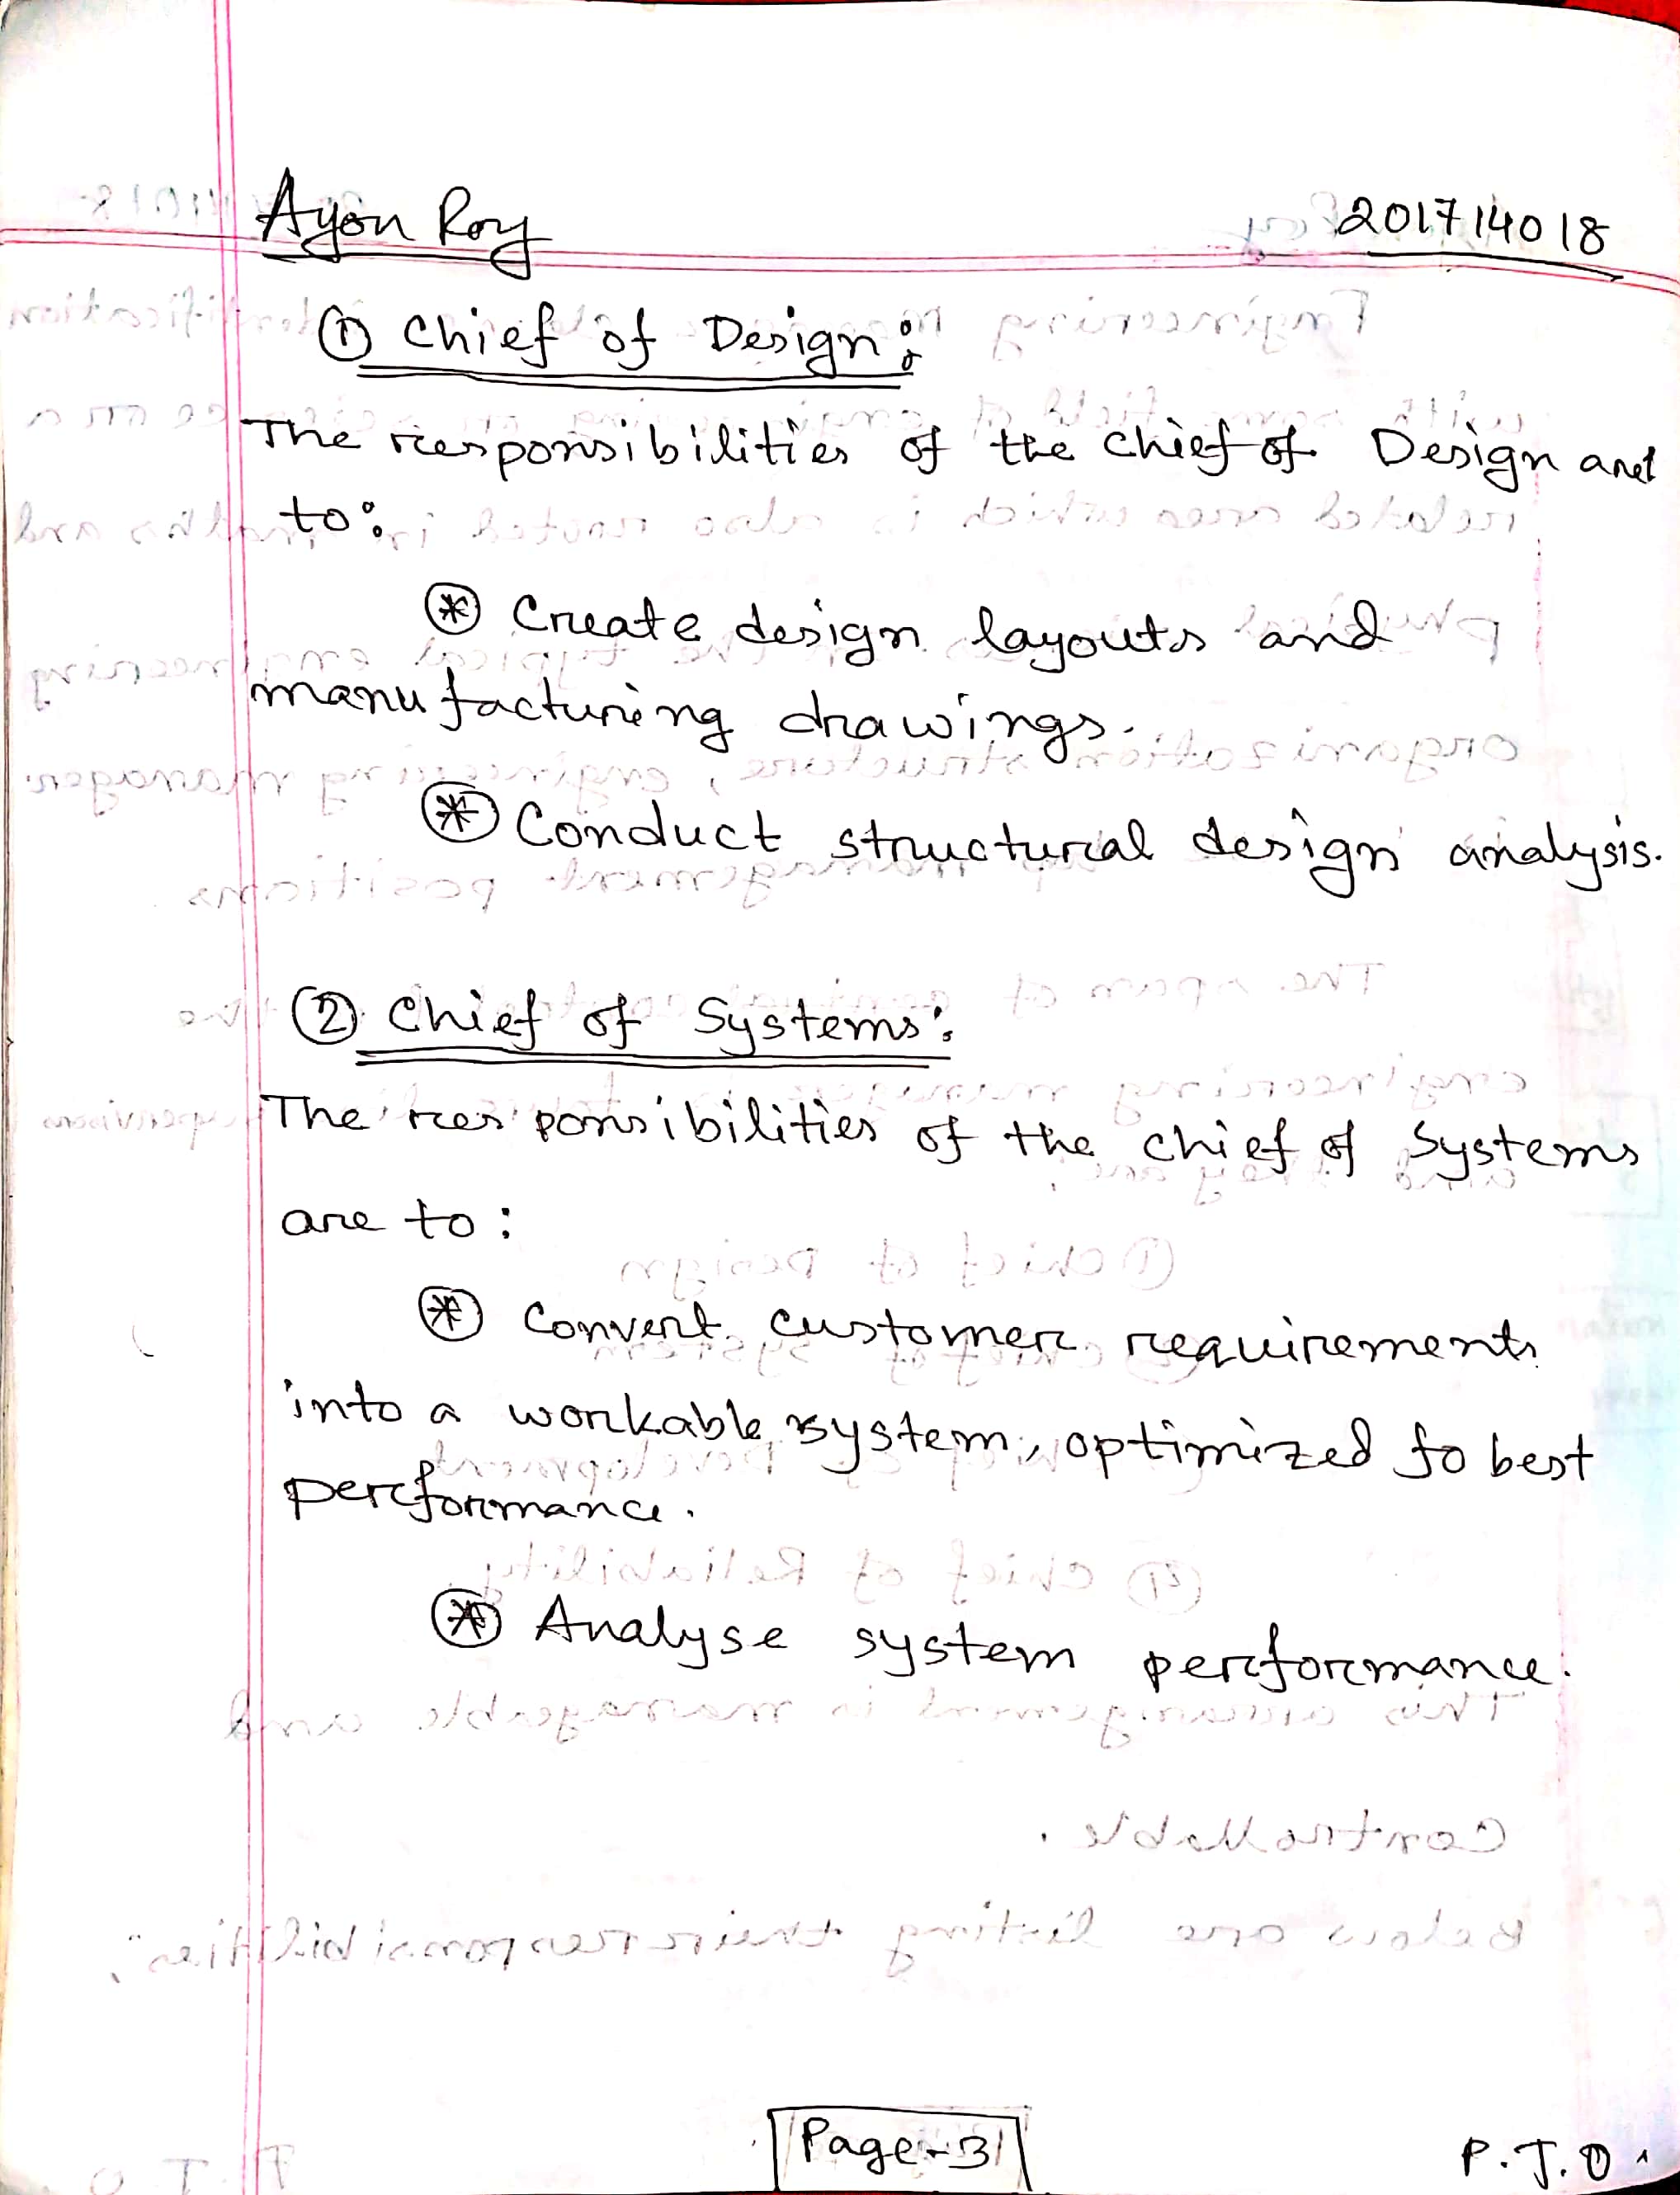 Ayon Roy 201714018
① Chief of Design:
The responsibilities of the chief of Design are
to:
⊛ Create design layouts and
manufacturing drawings.
⊛ Conduct structural design analysis.
② Chief of Systems:
The responsibilities of the chief of Systems
are to:
⊛ Convert customer requirements
into a workable system, optimized fo best
performance.
⊛ Analyse system performance.
Page-3
P.T.O.